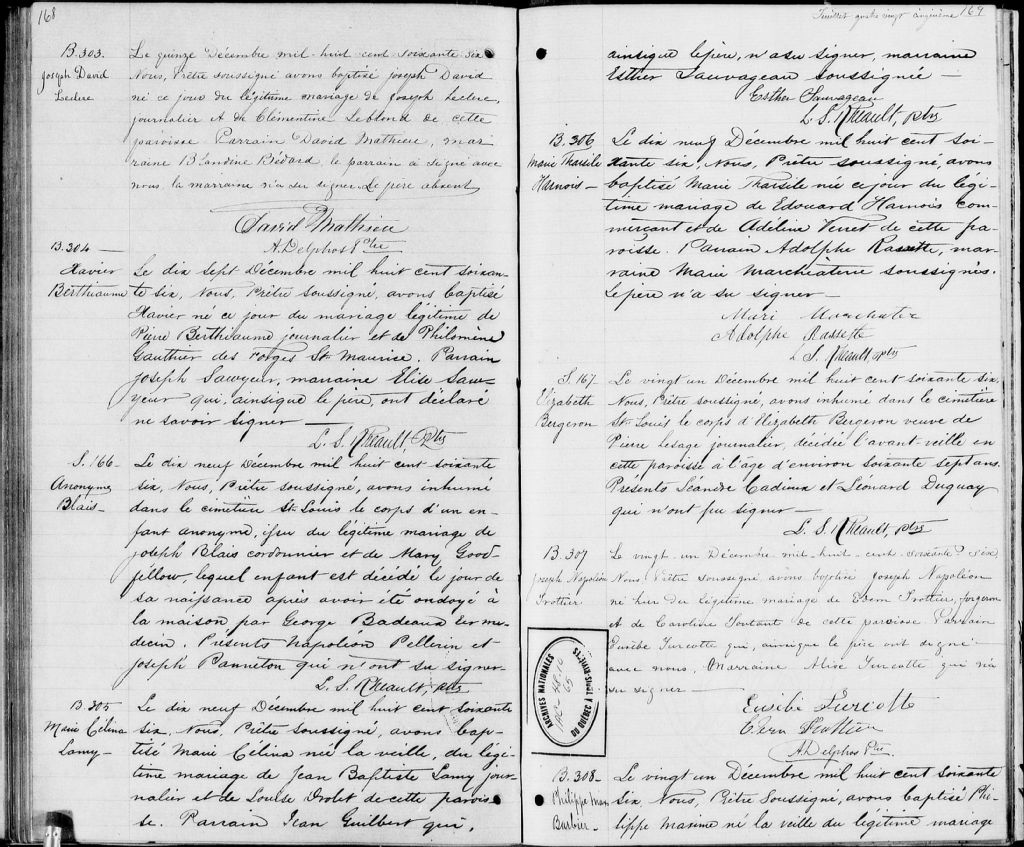 168
B. 303.
Joseph David
Leclerc
Le quinze Décembre mil-huit cent soixante six
Nous, Prêtre soussigné avons baptisé Joseph David
né ce jour du légitime mariage de Joseph Leclerc,
journalier et de Clémentine Leblond de cette
paroisse Parrain David Mathieu, mar
raine Blandine Bédard, le parrain a signé avec
nous, la marraine n'a su signer. Le père absent
David Mathieu
A. Delphos Ptre
B. 304 —
Xavier
Berthiaume
Le dix sept Décembre mil huit cent soixan-
te six, Nous, Prêtre soussigné, avons baptisé
Xavier né ce jour du mariage légitime de
Pierre Berthiaume journalier et de Philomène
Gauthier des Forges St Maurice. Parrain
Joseph Sawyeur, marraine Elise Saw-
yeur qui, ainsique le père, ont déclaré
ne savoir signer —
L. S. Rheault, Ptre
S. 166 —
Anonyme
Blais —
Le dix neuf Décembre mil huit cent soixante
six, Nous, Prêtre soussigné, avons inhumé
dans le cimetière St Louis le corps d'un en-
fant anonyme, issu du légitime mariage de
Joseph Blais cordonnier et de Mary Good-
fellow, lequel enfant est décédé le jour de
sa naissance après avoir été ondoyé à
la maison par George Badeaux Eer mé-
decin. Présents Napoléon Pellerin et
Joseph Panneton qui n'ont su signer-
L. S. Rheault, ptre
B. 305
Marie Célina
Lamy —
Le dix neuf Décembre mil huit cent soixante
six, Nous, Prêtre soussigné, avons bap-
tisé Marie Célina née la veille, du légi-
time mariage de Jean Baptiste Lamy jour-
nalier et de Louise Drolet de cette parois
se. Parrain Jean Guilbert qui,
Feuillet quatre vingt cinquième 169
ainsique le père, n'a su signer, marraine
Esther Sauvageau soussignée —
Esther Sauvageau
L. S. Rheault, ptre
B. 306
Marie Tharsile
Harnois —
Le dix neuf Décembre mil huit cent soi-
xante six, Nous, Prêtre soussigné, avons
baptisé Marie Tharsile née ce jour du légi-
time mariage de Edouard Harnois com-
mercant et de Adéline Verret de cette pa-
roisse. Parrain Adolphe Rassette, mar-
raine Marie Marchiâterre soussignés.
Le père n'a su signer —
Mari
Adolphe Rassette
L. S. Rheault, ptre
S. 167
Elizabeth
Bergeron
Le vingt un Décembre mil huit cent soixante six,
Nous, Prêtre soussigné, avons inhumé dans le cimetière
St Louis le corps d'Elizabeth Bergeron veuve de
Pierre Lesage journalier, décédée l'avant-veille en
cette paroisse à l'âge d'environ soixante sept ans.
Présents Léandre Cadieux et Léonard Duguay
qui n'ont pu signer —
L. S. Rheault, ptre
B. 307
Joseph Napoléon
Trottier
Le vingt-un Décembre mil-huit-cent-soixante six
Nous Prêtre soussigné avons baptisé Joseph Napoléon
né hier du légitime mariage de Edern Trottier, forgeron
et de Caroline Toutant de cette paroisse. Parrain
Eusèbe Turcotte qui, ainsique le père ont signé
avec nous, Marraine Alice Turcotte qui n'a
su signer —
Eusèbe Turcotte
Edern Trottier
A. Delphos Ptre
ARCHIVES NATIONALES
DU QUÉBEC À TROIS-RIVIÈRES
B. 308 —
Philippe Max
Barbier —
Le vingt un Décembre mil huit cent soixante
six, Nous, Prêtre soussigné, avons baptisé Phi-
lippe Maxime né la veille du légitime mariage